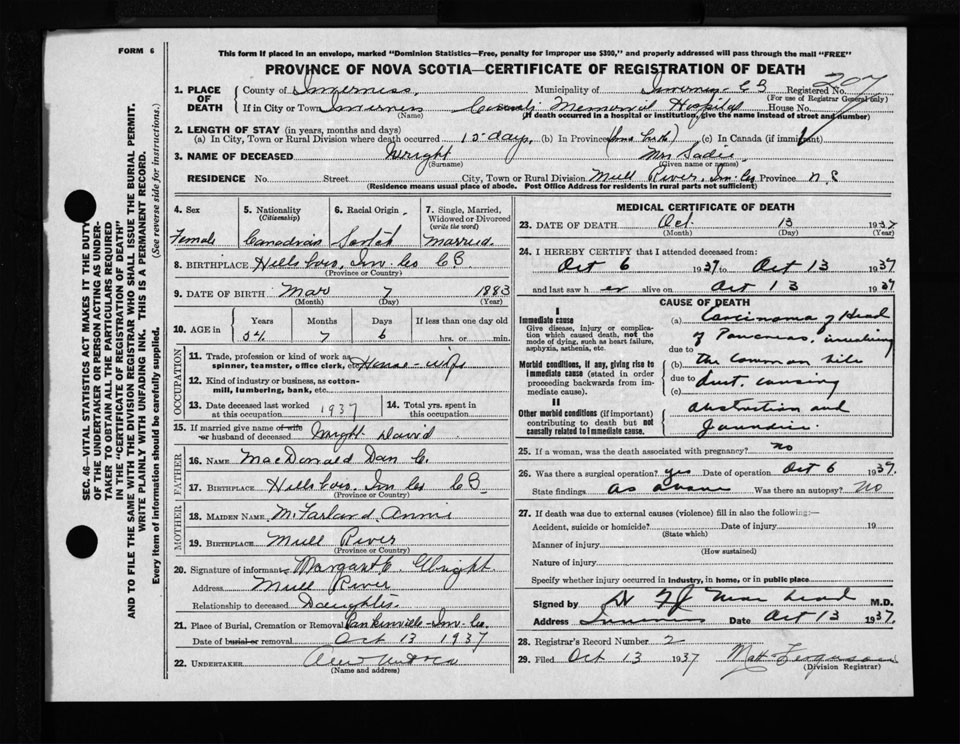 FORM 6
This form if placed in an envelope, marked "Dominion Statistics—Free, penalty for improper use $300," and properly addressed will pass through the mail "FREE"
PROVINCE OF NOVA SCOTIA—CERTIFICATE OF REGISTRATION OF DEATH
207
1. PLACE OF DEATH County of Inverness Municipality of Inverness CB Registered No.
(For use of Registrar General only)
If in City or Town Inverness Memorial Hospital House No.
(Name) (If death occurred in a hospital or institution, give the name instead of street and number)
2. LENGTH OF STAY (in years, months and days)
(a) In City, Town or Rural Division where death occurred 15 days (b) In Province (c) In Canada (if immigrant)
3. NAME OF DECEASED Wright Mrs Sadie
(Surname) (Given name or names)
RESIDENCE No. Street City, Town or Rural Division Mull River, Inv. Co Province N.S
(Residence means usual place of abode. Post Office Address for residents in rural parts not sufficient)
4. Sex Female
5. Nationality (Citizenship) Canadian
6. Racial Origin Scotch
7. Single, Married, Widowed or Divorced (write the word) Married
8. BIRTHPLACE Hillsboro, Inv. Co CB
(Province or Country)
9. DATE OF BIRTH Mar 7 1883
(Month) (Day) (Year)
10. AGE in Years 54 Months 7 Days 6 If less than one day old hrs. or min.
OCCUPATION
11. Trade, profession or kind of work as spinner, teamster, office clerk, etc. House-wife
12. Kind of industry or business, as cotton-mill, lumbering, bank, etc.
13. Date deceased last worked at this occupation 1937
14. Total yrs. spent in this occupation
15. If married give name of wife or husband of deceased Wright David
FATHER
16. NAME MacDonald Dan C.
17. BIRTHPLACE Hillsboro, Inv Co CB
(Province or Country)
MOTHER
18. MAIDEN NAME McFarland Annie
19. BIRTHPLACE Mull River
(Province or Country)
20. Signature of informant Margaret E. Wright
Address Mull River
Relationship to deceased Daughter
21. Place of Burial, Cremation or Removal Inv. Co.
Date of burial or removal Oct 13 1937
22. UNDERTAKER
(Name and address)
MEDICAL CERTIFICATE OF DEATH
23. DATE OF DEATH Oct. 13 1937
(Month) (Day) (Year)
24. I HEREBY CERTIFY that I attended deceased from:
Oct 6 1937 to Oct 13 1937
and last saw h er alive on Oct 13 1937
CAUSE OF DEATH
I
Immediate cause
Give disease, injury or complication which caused death, not the mode of dying, such as heart failure, asphyxia, asthenia, etc.
Morbid conditions, if any, giving rise to immediate cause (stated in order proceeding backwards from immediate cause).
II
Other morbid conditions (if important) contributing to death but not causally related to immediate cause.
(a) Carcinoma of Head
of Pancreas, involving
due to
(b) the common bile
due to duct, causing
(c)
obstruction and
jaundice.
25. If a woman, was the death associated with pregnancy? no
26. Was there a surgical operation? yes Date of operation Oct 6 1937.
State findings as above Was there an autopsy? No
27. If death was due to external causes (violence) fill in also the following:—
Accident, suicide or homicide? Date of injury 19
(State which)
Manner of injury
(How sustained)
Nature of injury
Specify whether injury occurred in industry, in home, or in public place
Signed by M.D.
Address Inverness Date Oct 13 1937.
28. Registrar's Record Number 2
29. Filed Oct 13 1937 Matt Ferguson
(Division Registrar)
SEC. 46—VITAL STATISTICS ACT MAKES IT THE DUTY
OF THE UNDERTAKER OR PERSON ACTING AS UNDER-
TAKER TO OBTAIN ALL THE PARTICULARS REQUIRED
IN THE "CERTIFICATE OF REGISTRATION OF DEATH"
AND TO FILE THE SAME WITH THE DIVISION REGISTRAR WHO SHALL ISSUE THE BURIAL PERMIT.
WRITE PLAINLY WITH UNFADING INK. THIS IS A PERMANENT RECORD.
Every item of information should be carefully supplied. (See reverse side for instructions.)